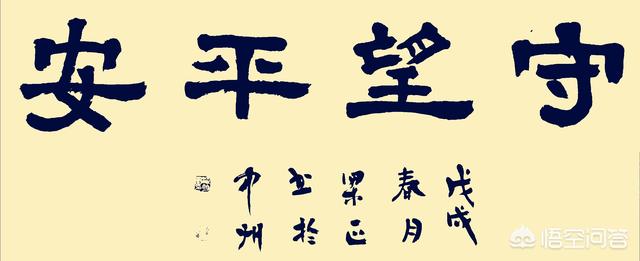 守望平安
戊戌
春月
正
书於
中州
悟空问答